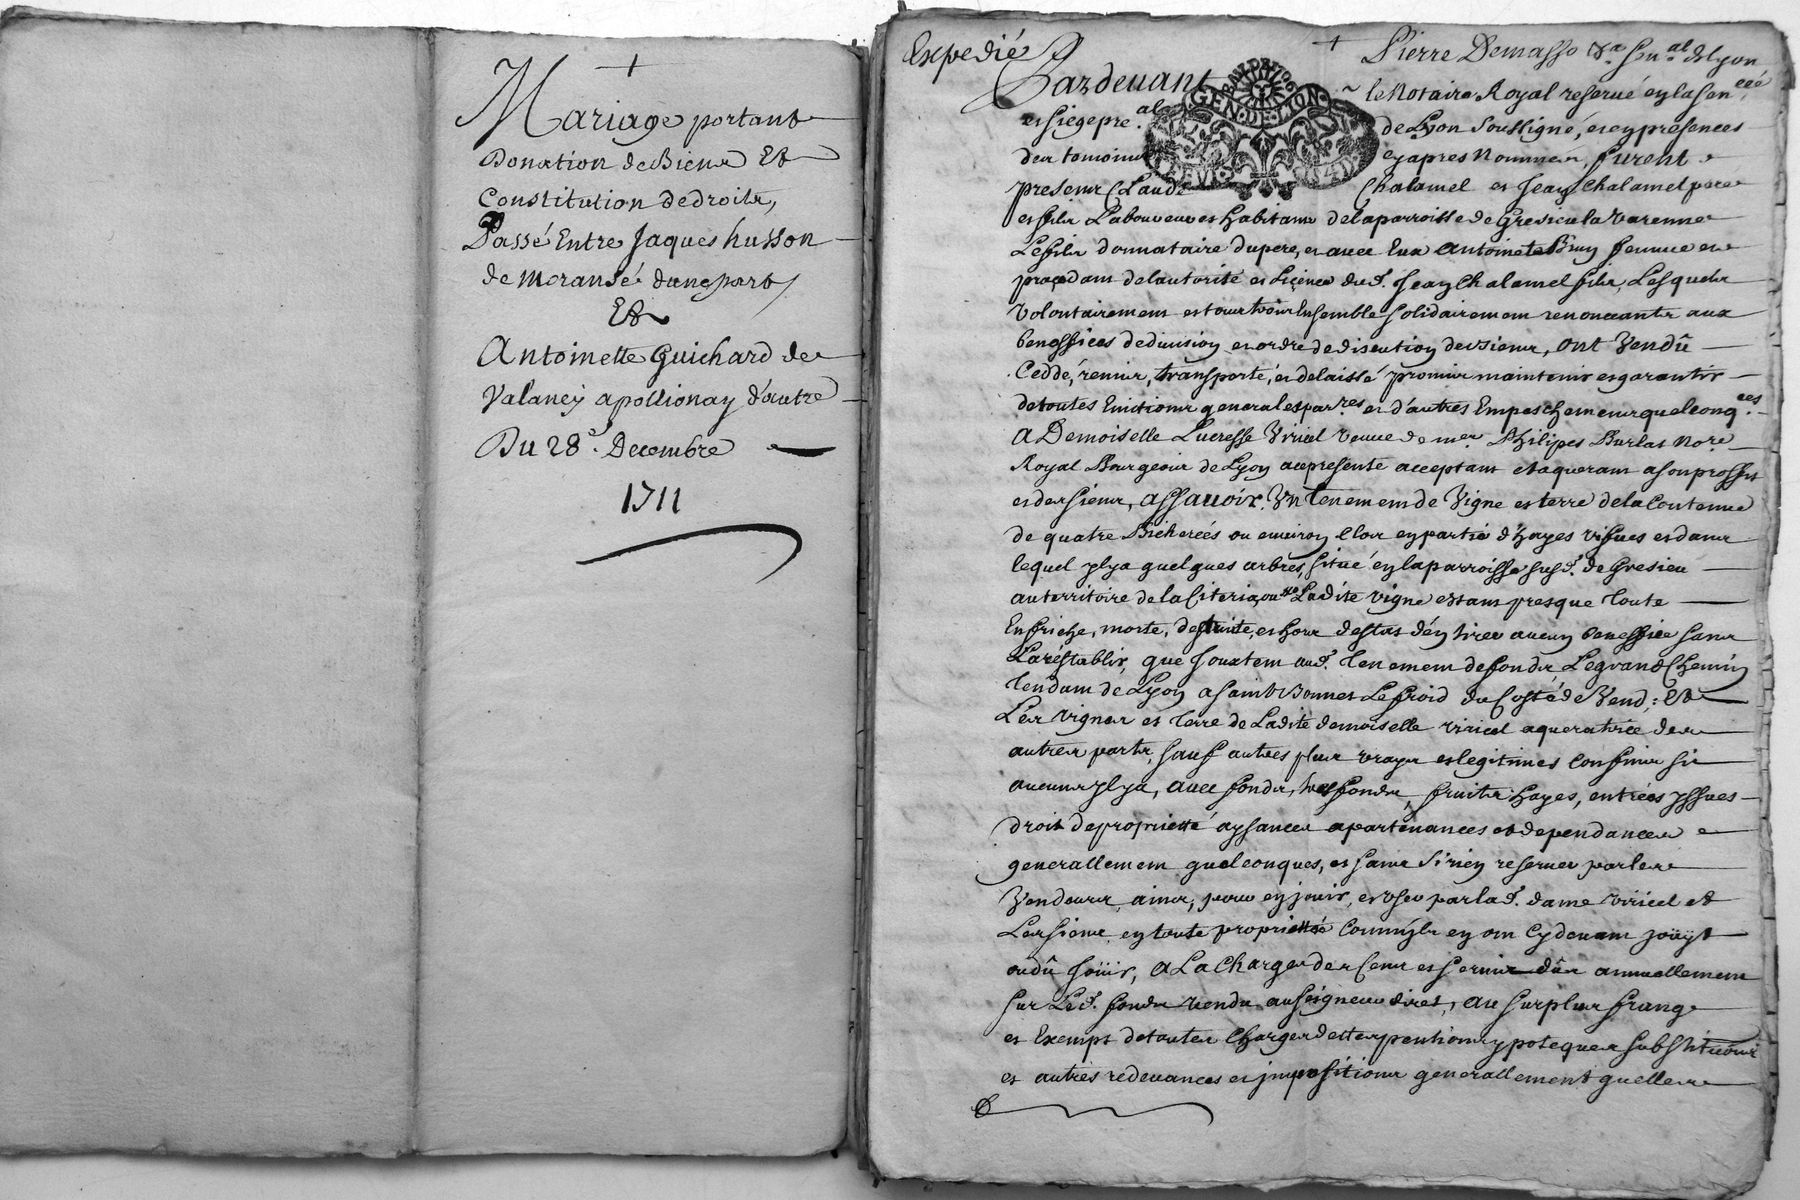 +
Mariage portant
Donation de Biens Et
Constitution de droits,
Passé Entre Jaques husson
de moransé d'une part
Et
Antoinette Guichard de
Valancy a pollionay d'autre
Du 28e. Decembre
1711
Expedié
+ Pierre Demasso Lyon
Pardevant le Notaire Royal reservé en la senceé
BAU DE 1706
GEN. DE LION
et siege preal. de Lyon soussigné, et en presences
des tomoins cy apres Nommés, furent
presens Claude Chalamel et Jean Chalamel pere
et fils Laboureurs habitans de la parroisse de Gresieu la Varenne
Le fils donnataire du pere, et avec Eux Antoinete Brun femme et
proçedam de l'autorité et Liçence dud. Jean Chalamel fils, Lesquels
volontairement et tous trois Ensemble solidairement renonceants aux
beneffices de division et ordre de discution de siens, ont Vendû
Ceddé, remis, transporté, et delaissé promis maintenir et garantir
de toutes Evictions general et parres. et d'autres Empeschemens quelconqes.
A Demoiselle Lucresse Viricel veuve de mer. Philipes Burlat Nore.
Royal Bourgeois de Lyon a ce presente acceptant et aquerant a son proffit
et des siens, assavoir. Un tenement de Vigne et terre de la Contenue
de quatre Bicherées ou environ Clos en partie d'hayes visves et dans
lequel il y a quelques arbres, situé en la parroisse susd. de Gresieu
au territoire de la Ladite vigne estant presque toute
En friche, morte, et hors d'estat d'en tirer aucun beneffice sans
La réstablir, que Jouxtent aud. tenement de fonds Le grand Chemin
tendant de Lyon a saint Bonnet Le froid du Costé de Vend; Et
Les vignes et terre de Ladite demoiselle viricel aqueratrice des
autres parts, sauf autres plus vrays et legitimes Confins si
aucuns il y a, avec fonds, tresfonds, fruits hayes, entrées yssues
droit de proprietté aysances apartenances et dependances
generallement quelconques, et sans si rien reserver par les
Vendeurs, ainsi, pour en jouir, et user par lad. dame viricel et
Les siens en toute proprietté Comme ils en ont Cy devant joüyt
ou dû Joüir, A La Charge des Cens et servis dûs annuellement
sur Led. fonds vendu au seigneur direct, au surplus franq
et Exempt de toutes Charges dettes pentions ypoteques substitutions
et autres redevances et impositions generallement quelles